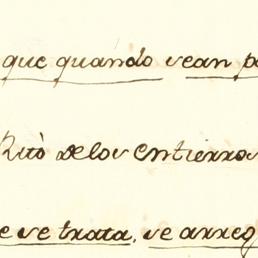 que quando sean p
Ritò de los entierros
e se trata, se arreg